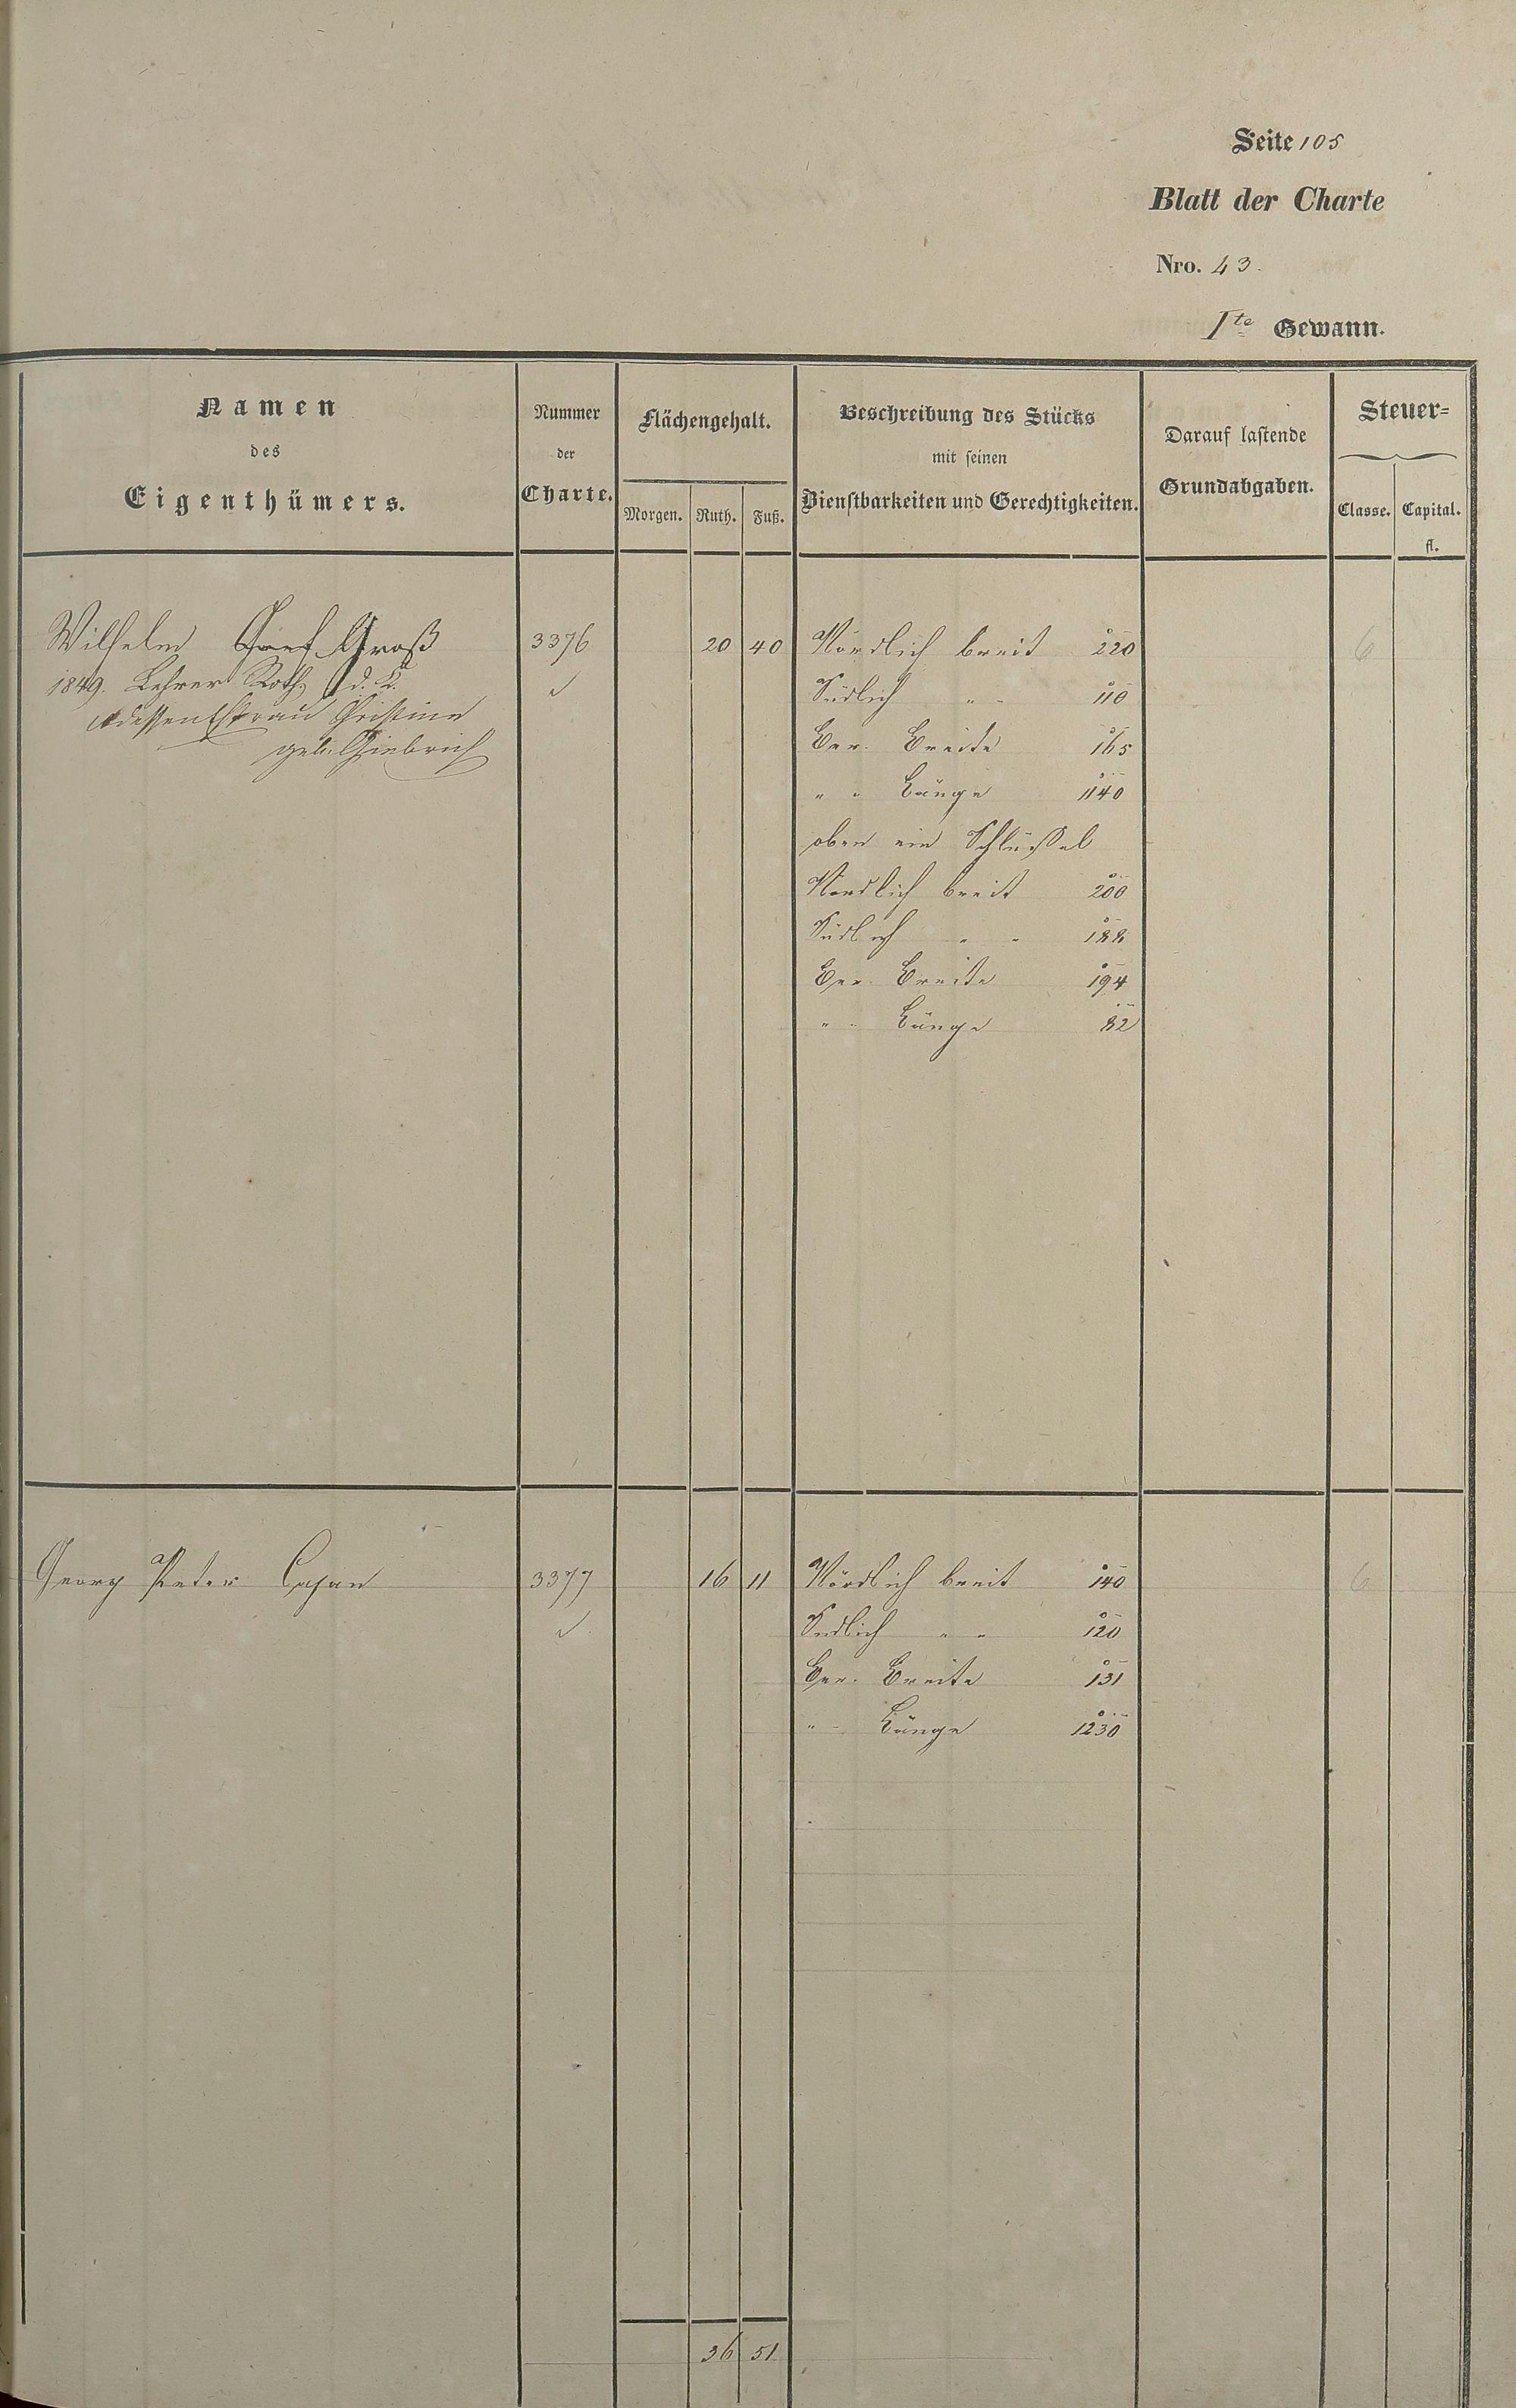 Seite 105
Blatt der Charte
Nro. 43.
Ite Gewann.
Namen
des
Eigenthümers.
Nummer
der
Charte.
Flächengehalt.
Morgen. Ruth. Fuß.
Beschreibung des Stücks
mit seinen
Dienstbarkeiten und Gerechtigkeiten.
Darauf lastende
Grundabgaben.
Steuer=
Classe. Capital.
fl.
Wilhelm Groß 3376 20 40 Nördlich breit 220 6
1849. Lehrer Roth, d. K. Südlich " " 110
dessen Ehefrau Christine
geb. Giebrich
Ger. Breite 165
" " Länge 1140
oben ein Schlüssel
Nördlich breit 200
Südlich " " 188
Ger. Breite 194
" " Länge 82
Georg Peter Cajan 3377 16 11 Nördlich breit 140 6
Südlich " " 120
Ger. Breite 131
" " Länge 1230
36 51